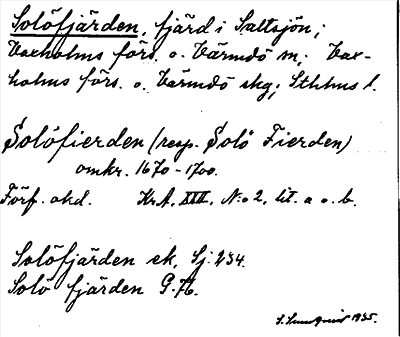 Solöfjärden, fjärd i Saltsjön;
Vaxholms förs. o. Värmdö sn; Vax-
holms förs. o. Värmdö skg; Sthlms l.
Solöfierden (resp. Solö Fierden)
omkr. 1670-1700.
Förf. okd. Kr.A. XIII, N:o 2, lit. a o. b.
Solöfjärden ek, Sj. 234.
Solö fjärden G.A.
1935.